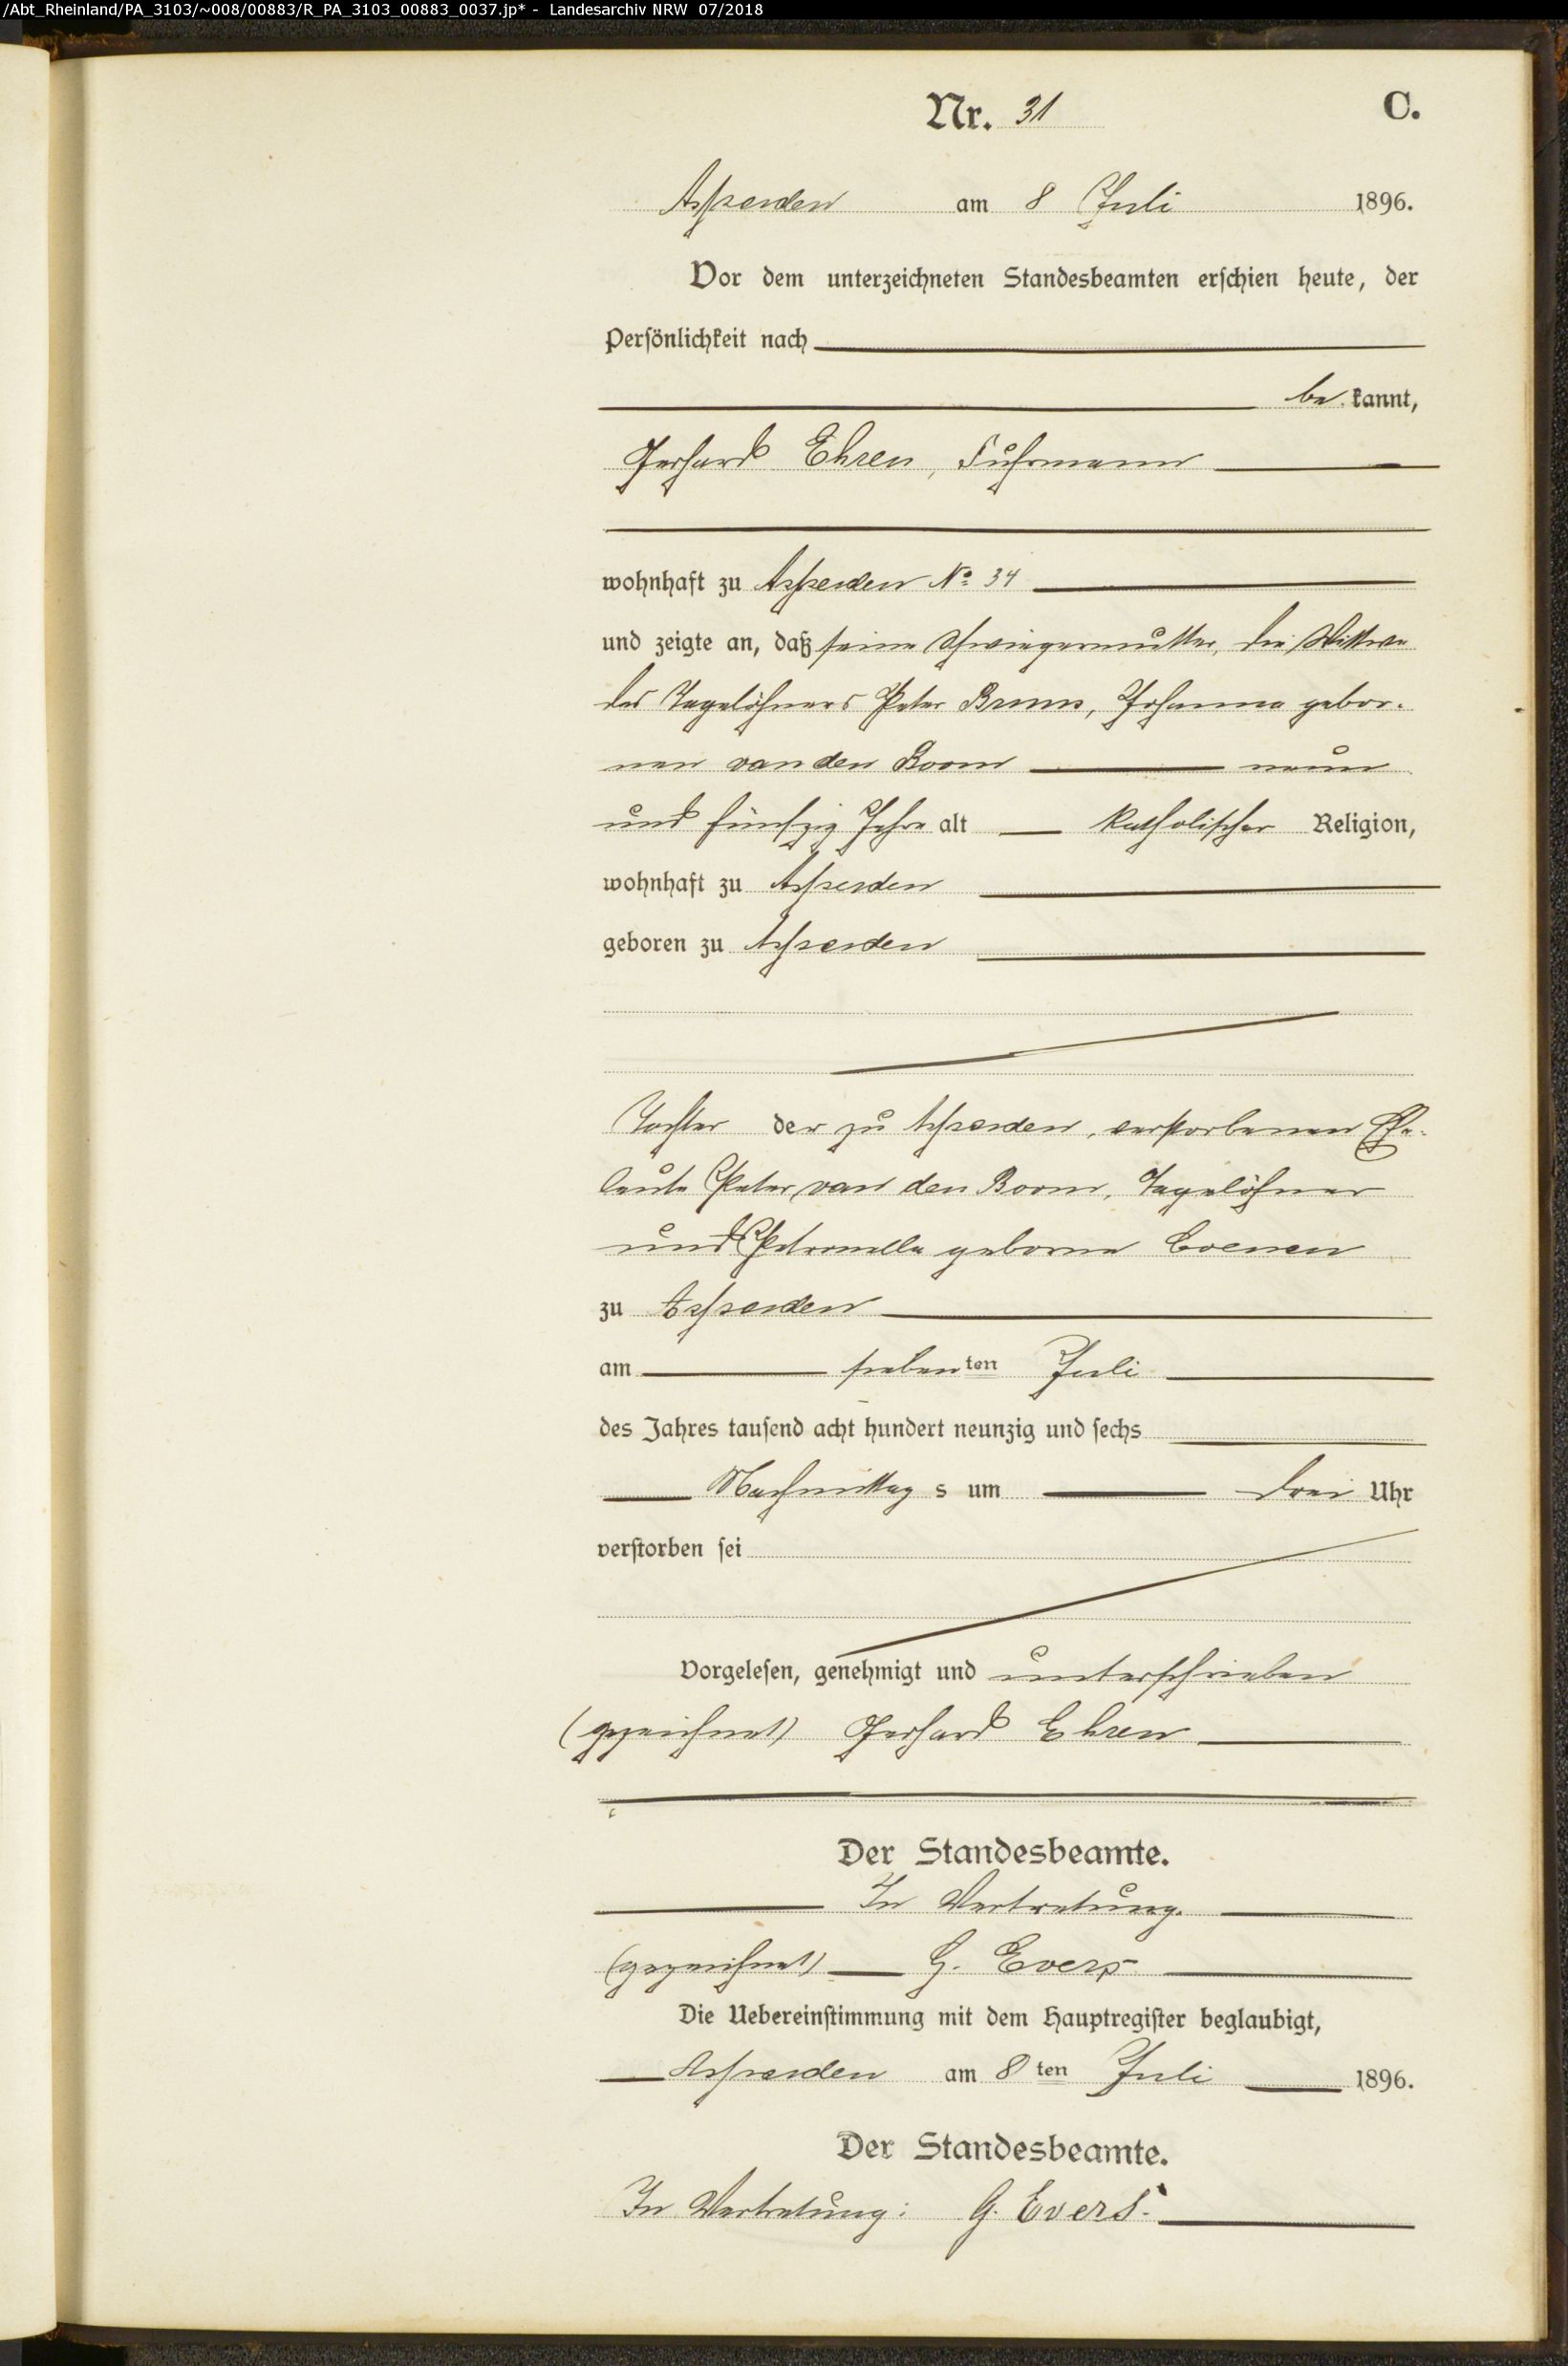 /Abt_Rheinland/PA_3103/~008/00883/R_PA_3103_00883_0037.jp* - Landesarchiv NRW 07/2018
Nr. 31
C.
Asperden am 8 Juli 1896.
Vor dem unterzeichneten Standesbeamten erschien heute, der
Persönlichkeit nach
be kannt,
Gerhard Ehren, Fuhrmann
wohnhaft zu Asperden No 34
und zeigte an, daß seine Schwiegermutter, die Wittwe
des Tagelöhners Peter Bruns, Johanna gebor-
nen van den Boom neun
und fünfzig Jahre alt katholischer Religion,
wohnhaft zu Asperden
geboren zu Asperden
Tochter der zu Asperden, verstorbenen Ehe-
leute Peter van den Boom, Tagelöhner
und Petronella geborne Coenen
zu Asperden
am siebenten Juli
des Jahres tausend acht hundert neunzig und sechs
Nachmittags um drei Uhr
verstorben sei
Vorgelesen, genehmigt und unterschrieben
(gezeichnet) Gerhard Ehren
Der Standesbeamte.
In Vertretung.
(gezeichnet) G. Evers
Die Uebereinstimmung mit dem Hauptregister beglaubigt,
Asperden am 8ten Juli 1896.
Der Standesbeamte.
In Vertretung: G. Evers.